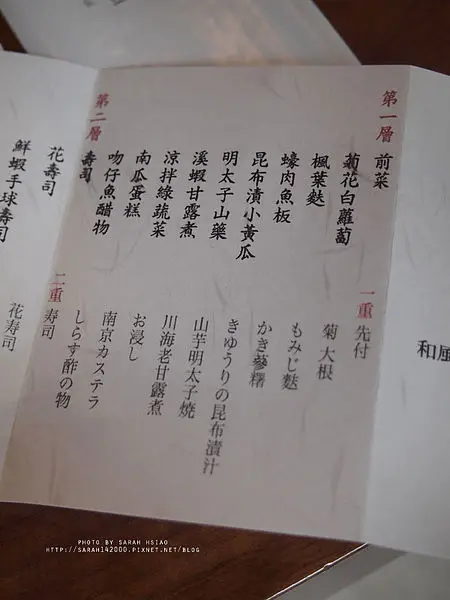 和風
第一層 前菜
菊花白蘿蔔
楓葉麩
蠔肉魚板
昆布漬小黃瓜
明太子山藥
溪蝦甘露煮
涼拌綠蔬菜
南瓜蛋糕
吻仔魚醋物
第二層 壽司
花壽司
鮮蝦手球壽司
一重 先付
菊大根
もみじ麩
かき
きゅうりの昆布漬汁
山芋明太子焼
川海老甘露煮
お浸し
南京カステラ
しらす酢の物
二重 寿司
花寿司
PHOTO BY SARAH HSIAO
HTTP://SARAH142000.PIXNET.NET/BLOG